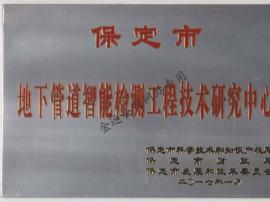 保定市
地下管道智能检测工程技术研究中心
保定市科学技术和知识产权局
保定市财政局
保定市发展和改革委员会
二〇一七年一月